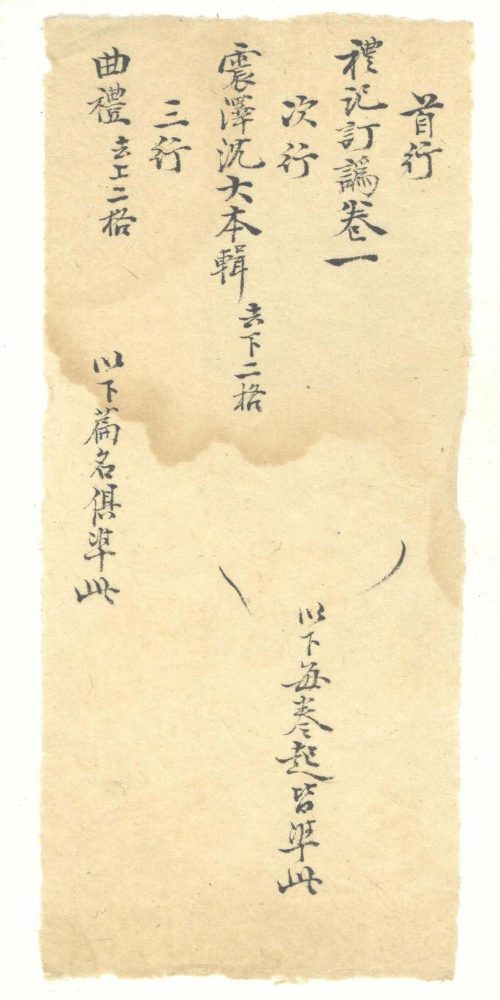 首行
禮記訂譌卷一
次行
震澤沈大本輯 去下二格
三行
曲禮 去上二格
以下每卷起皆準此
以下篇名俱準此